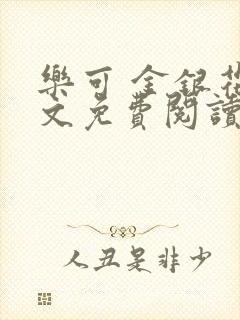 樂可 金銀花
文免費閱讀
人丑是非少